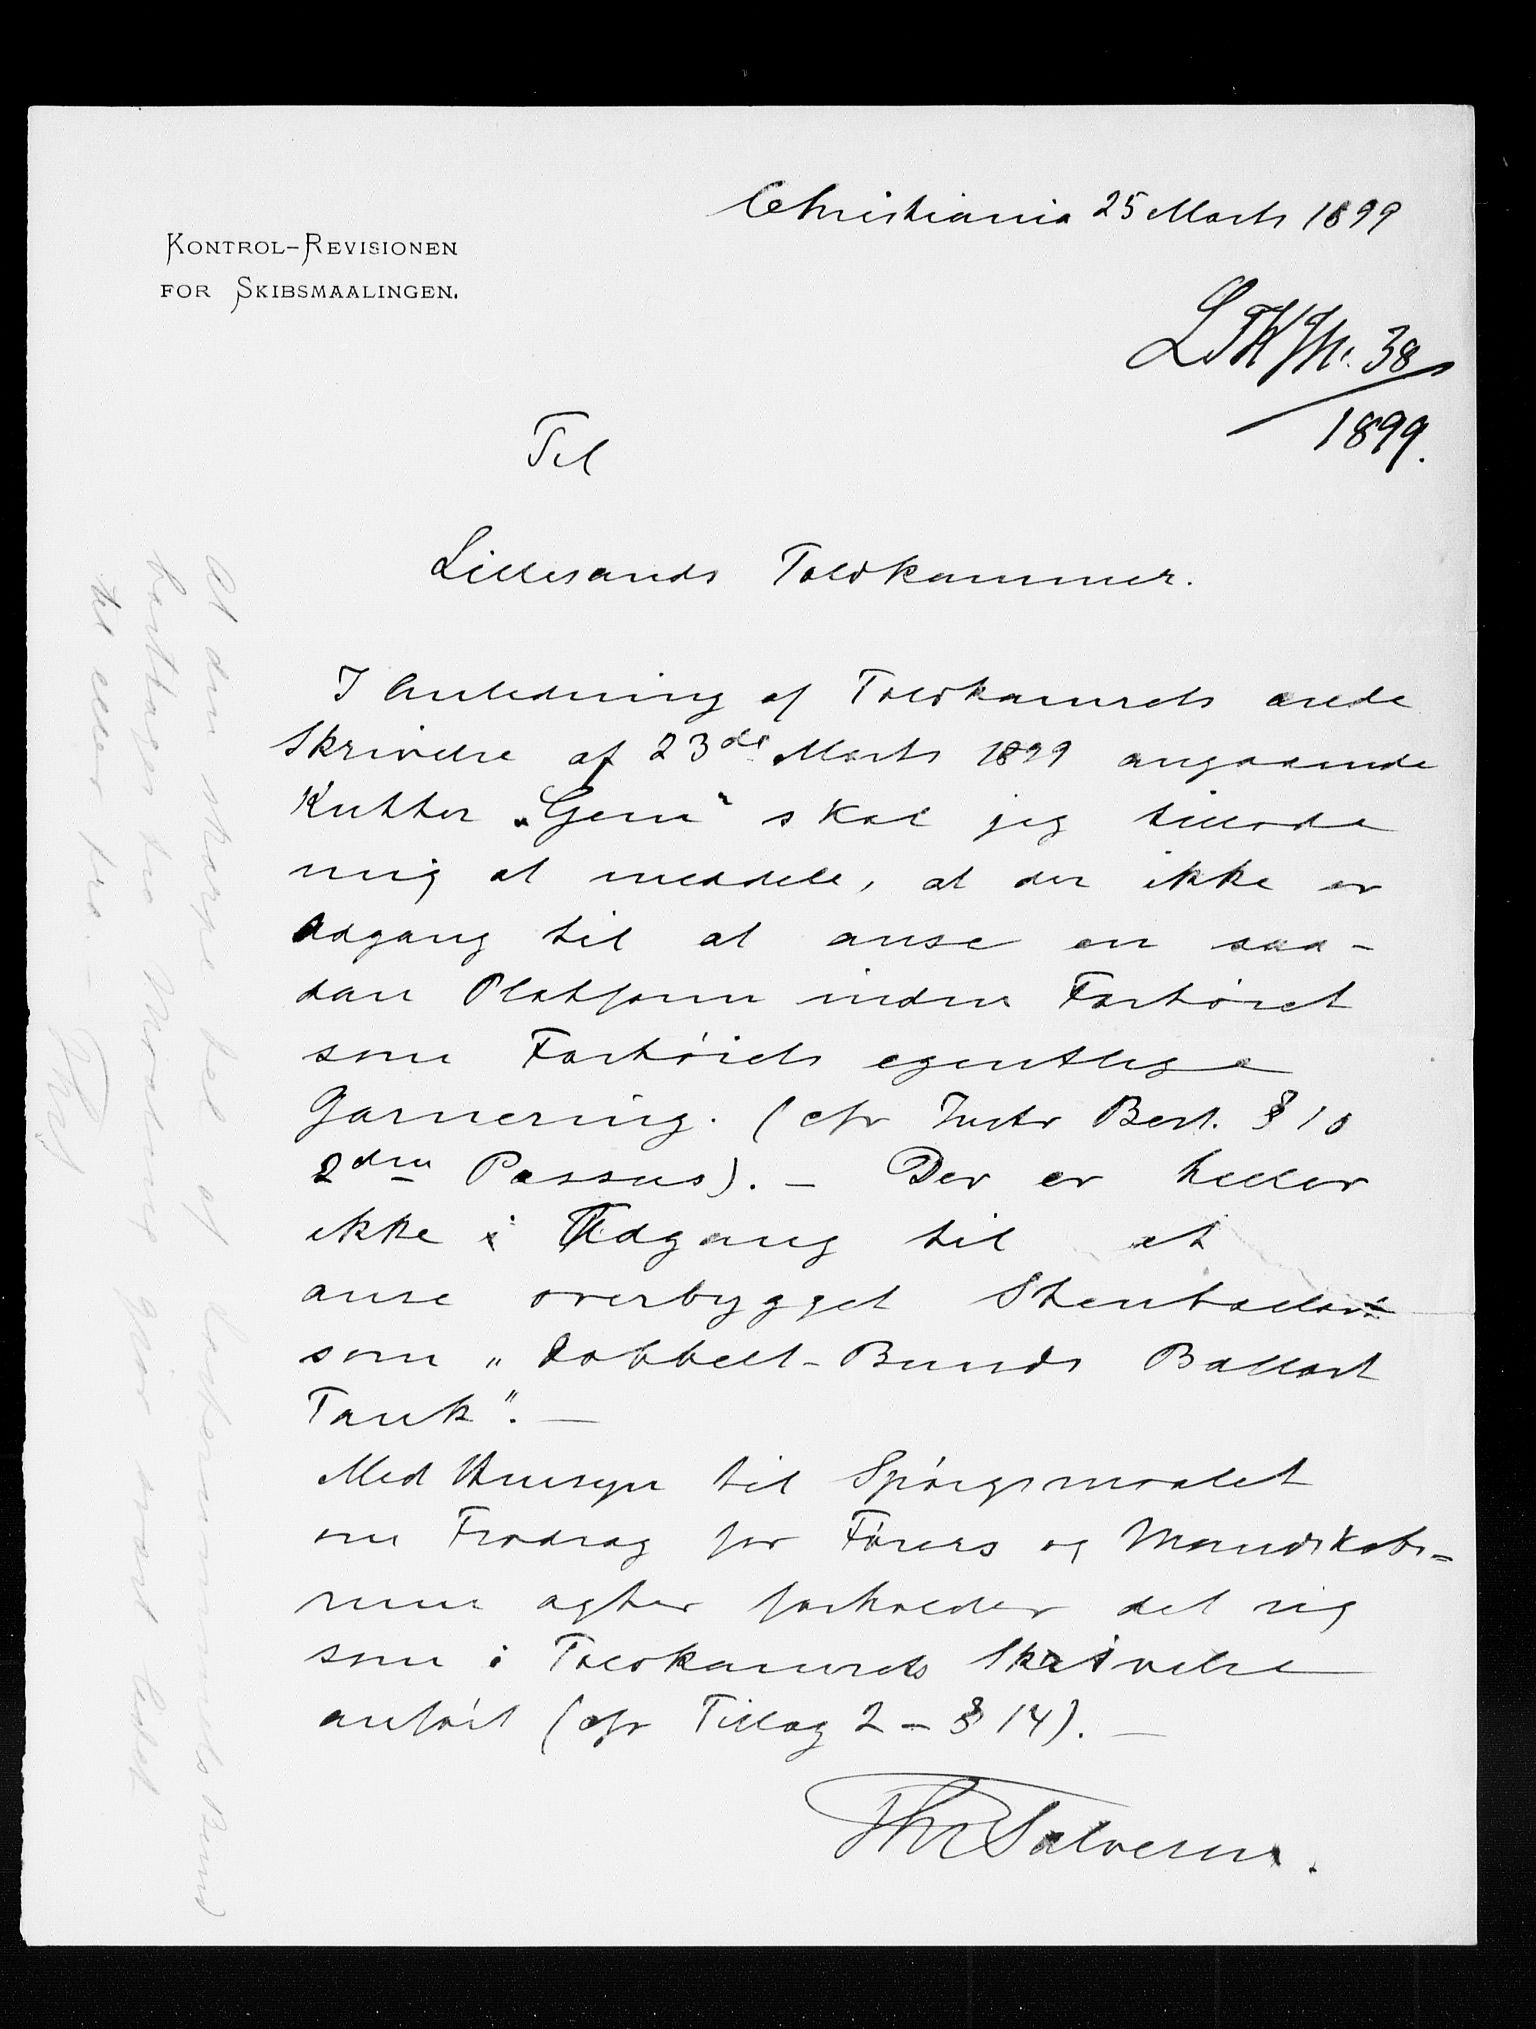 Christiania 25 Marts 1899
KONTROL-REVISIONEN
FOR SKIBSMAALINGEN.
LTK Jn. 38
1899.
Til
Lillesands Toldkammer.
I Anledning af Toldkamrets ærede
Skrivelse af 23de Marts 1899 angaaende
Kutter „Gem“ skal jeg tillade
mig at meddele, at der ikke er
Adgang til at anse en saa-
dan Platform inden Fartøiet
som Fartøiets egentlige
Garnering. (cfr Instr Best. § 10
2den Passus). — Der er heller
ikke Adgang til at
anse overbygget Stenballast
som „Dobbelt-Bunds Ballast
Tank“. —
Med Hensyn til Spørgsmaalet
om Fradrag for Førers og Mandskabs-
rum agter forholder det sig
som i Toldkamrets Skrivelse
anført (cfr Tillæg 2 – § 14). —
Thr Salvesen.
At den skarpe Del af Lasterummets Bund
borttages fra Maaling gjør svært lidet
til eller fra. —